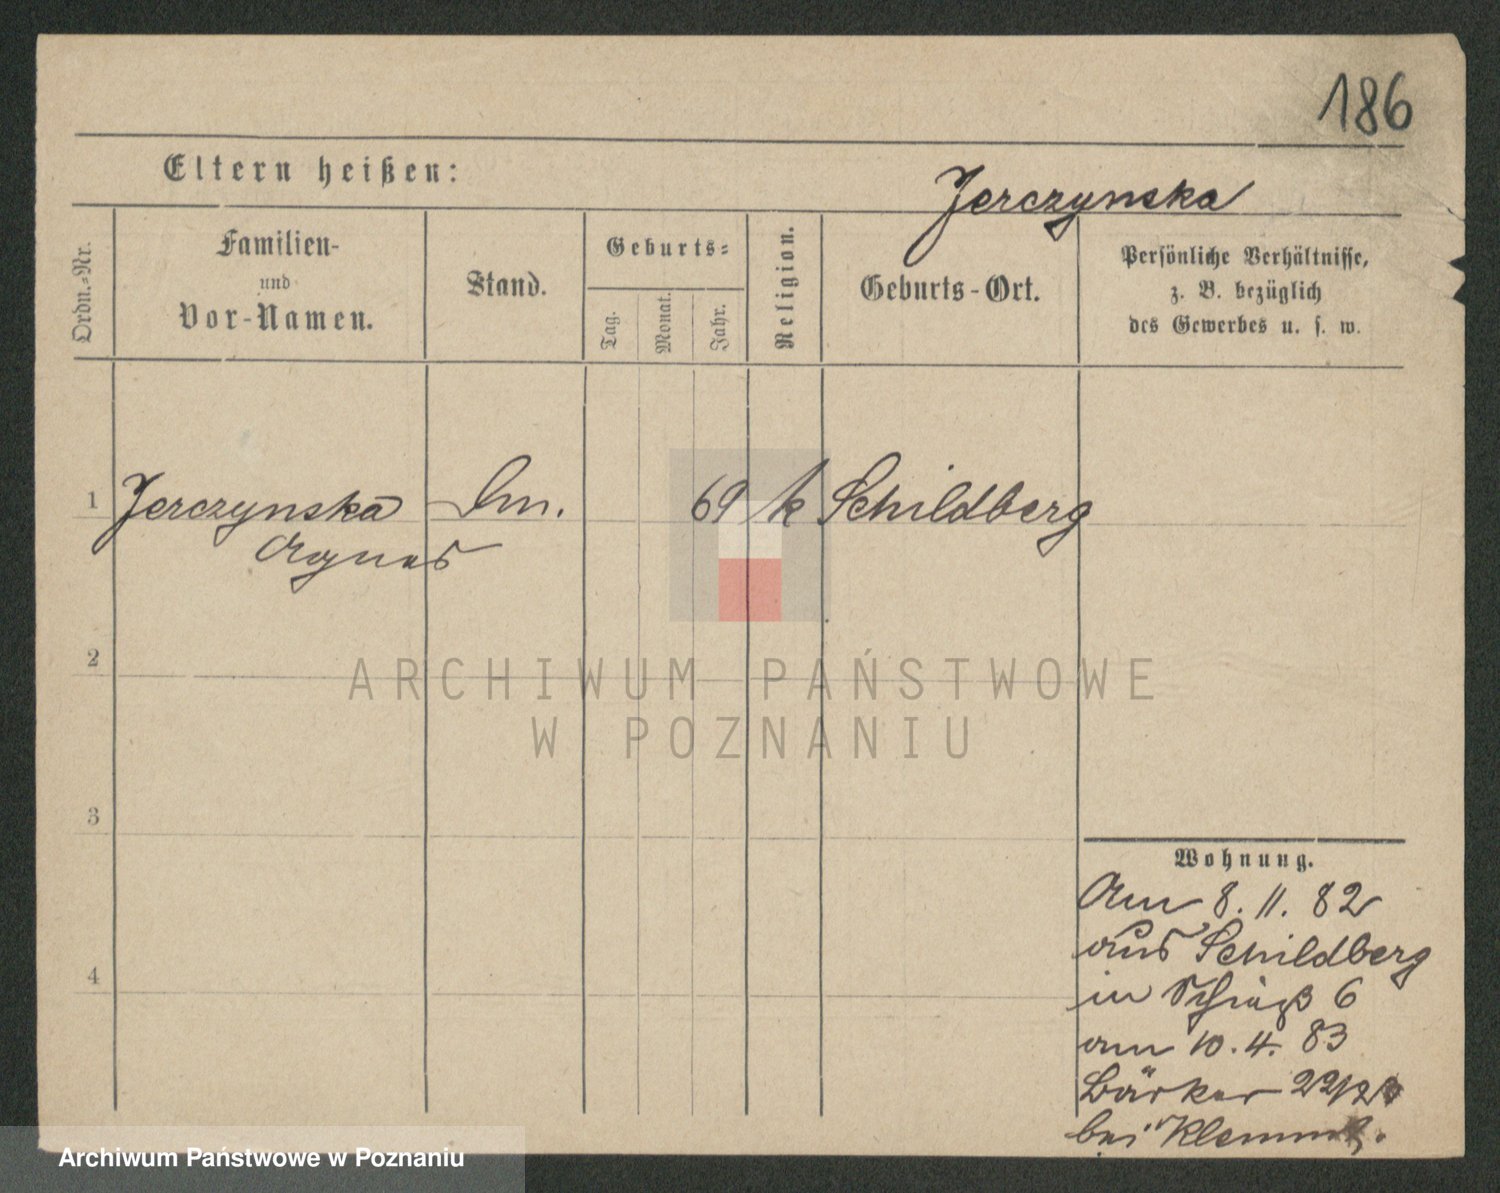 186
Eltern heißen:
Jerczynska
Ordn.-Nr.
Familien-
und
Vor-Namen.
Stand.
Geburts-
Tag.
Monat.
Jahr.
Religion.
Geburts-Ort.
Persönliche Verhältnisse,
z. B. bezüglich
des Gewerbes u. s. w.
1 Jerczynska 69 k Schildberg
Agnes
2
3
4
ARCHIWUM PAŃSTWOWE
W POZNANIU
Wohnung.
Am 8. 11. 82
aus Schildberg
in 6
am 10. 4. 83
Bäcker
bei
Archiwum Państwowe w Poznaniu